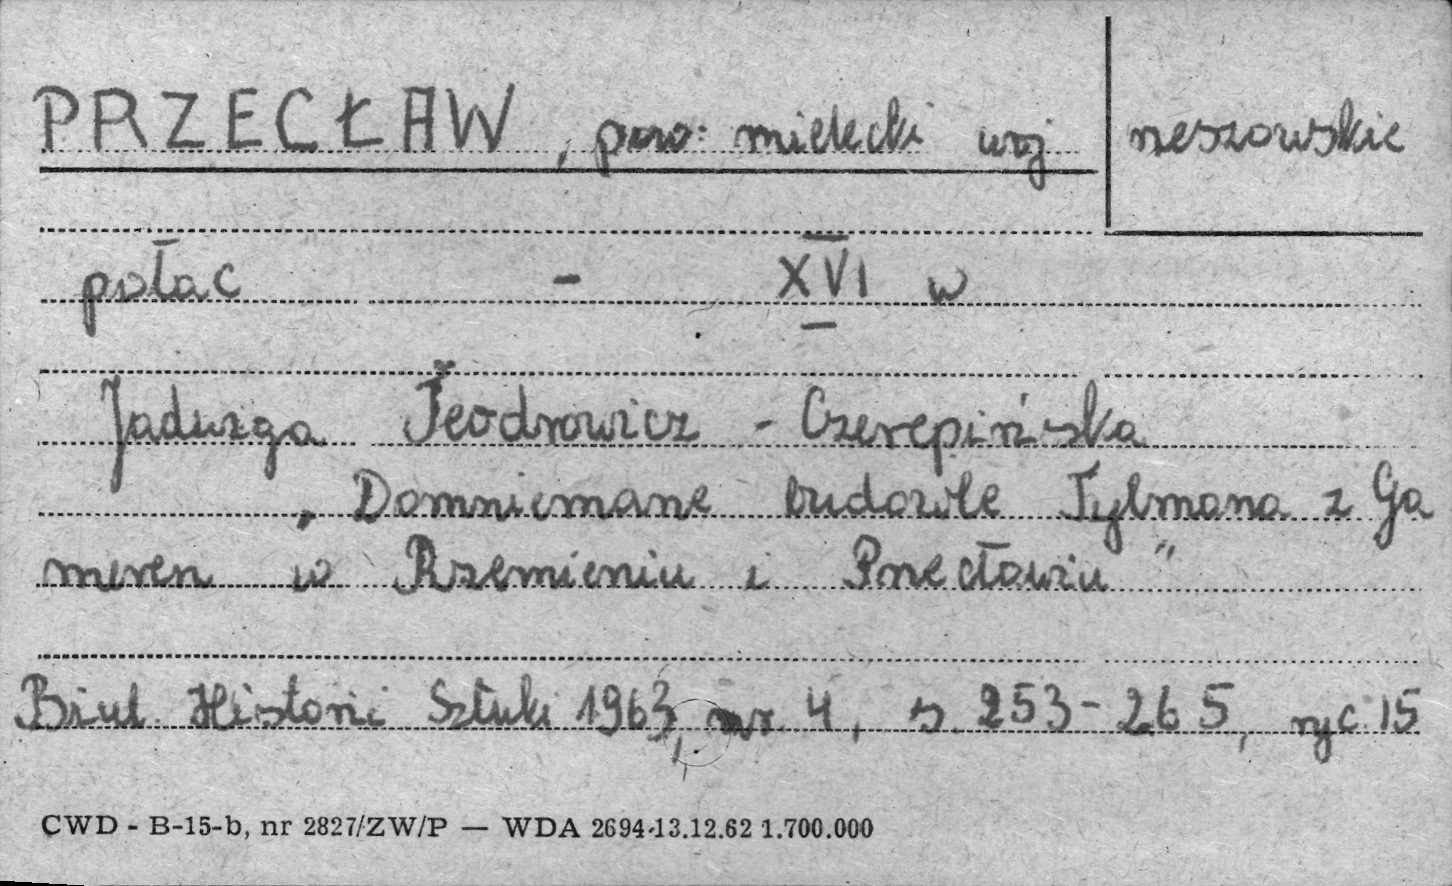 PRZECŁAW, pow: mielecki woj rzeszowskie
pałac - XVI w
Jadwiga Teodrowicz - Czerepińska
„Domniemane budowle Tylmana z Ga
meren w Rzemieniu i Przecławiu"
Biul. Historii Sztuki 1963, nr. 4, s. 253-265, ryc. 15
CWD - B-15-b, nr 2827/ZW/P — WDA 2694-13.12.62 1.700.000